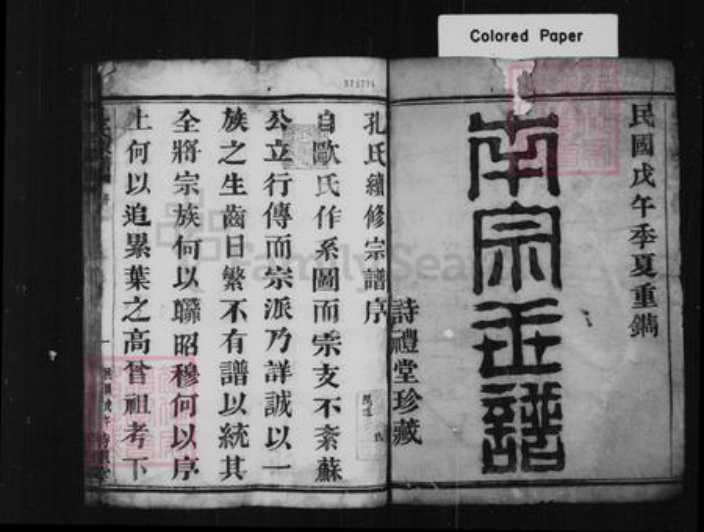 Colored Paper
民國戊午季夏重鐫
南宗世譜
詩禮堂珍藏
孔氏續修宗譜序
自歐氏作系圖而宗支不紊蘇
公立行傳而宗派乃詳誠以一
族之生齒日繁不有譜以統其
全將宗族何以聯昭穆何以序
上何以追累葉之高曾祖考下
FamilySearch